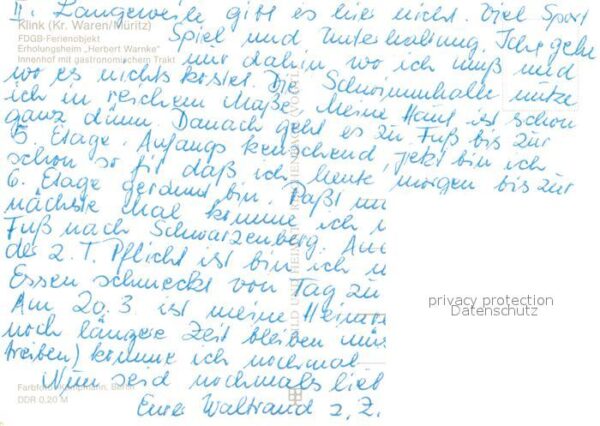 II. Langeweile gibt es hier nicht. Viel Sport
Klink (Kr. Waren/Müritz)
FDGB-Ferienobjekt
Erholungsheim „Herbert Warnke"
Innenhof mit gastronomischem Trakt
Spiel und Unterhaltung. Ich gehe
nur dahin wo ich muß und
wo es nichts kostet. Die Schwimmhalle nutze
ich in reichem Maße. Meine Haut ist schon
ganz dünn. Danach geht es zu Fuß bis zur
5. Etage. Anfangs keuchend, jetzt bin ich
schon so fit daß ich heute morgen bis zur
6. Etage gerannt bin. Paßt
nächste Mal komme ich
Fuß nach Schwarzenberg.
des 2. T. Pflicht ist bin ich
Essen schmeckt von Tag zu
Am 20.3. ist meine
noch längere Zeit bleiben
treiben) komme ich nochmal
Nun seid nochmals
Eure Waltraud z. Z.
BILD UND HEIMAT REICHENBACH (VOGTL)
DDR 0,20 M
privacy protection
Datenschutz